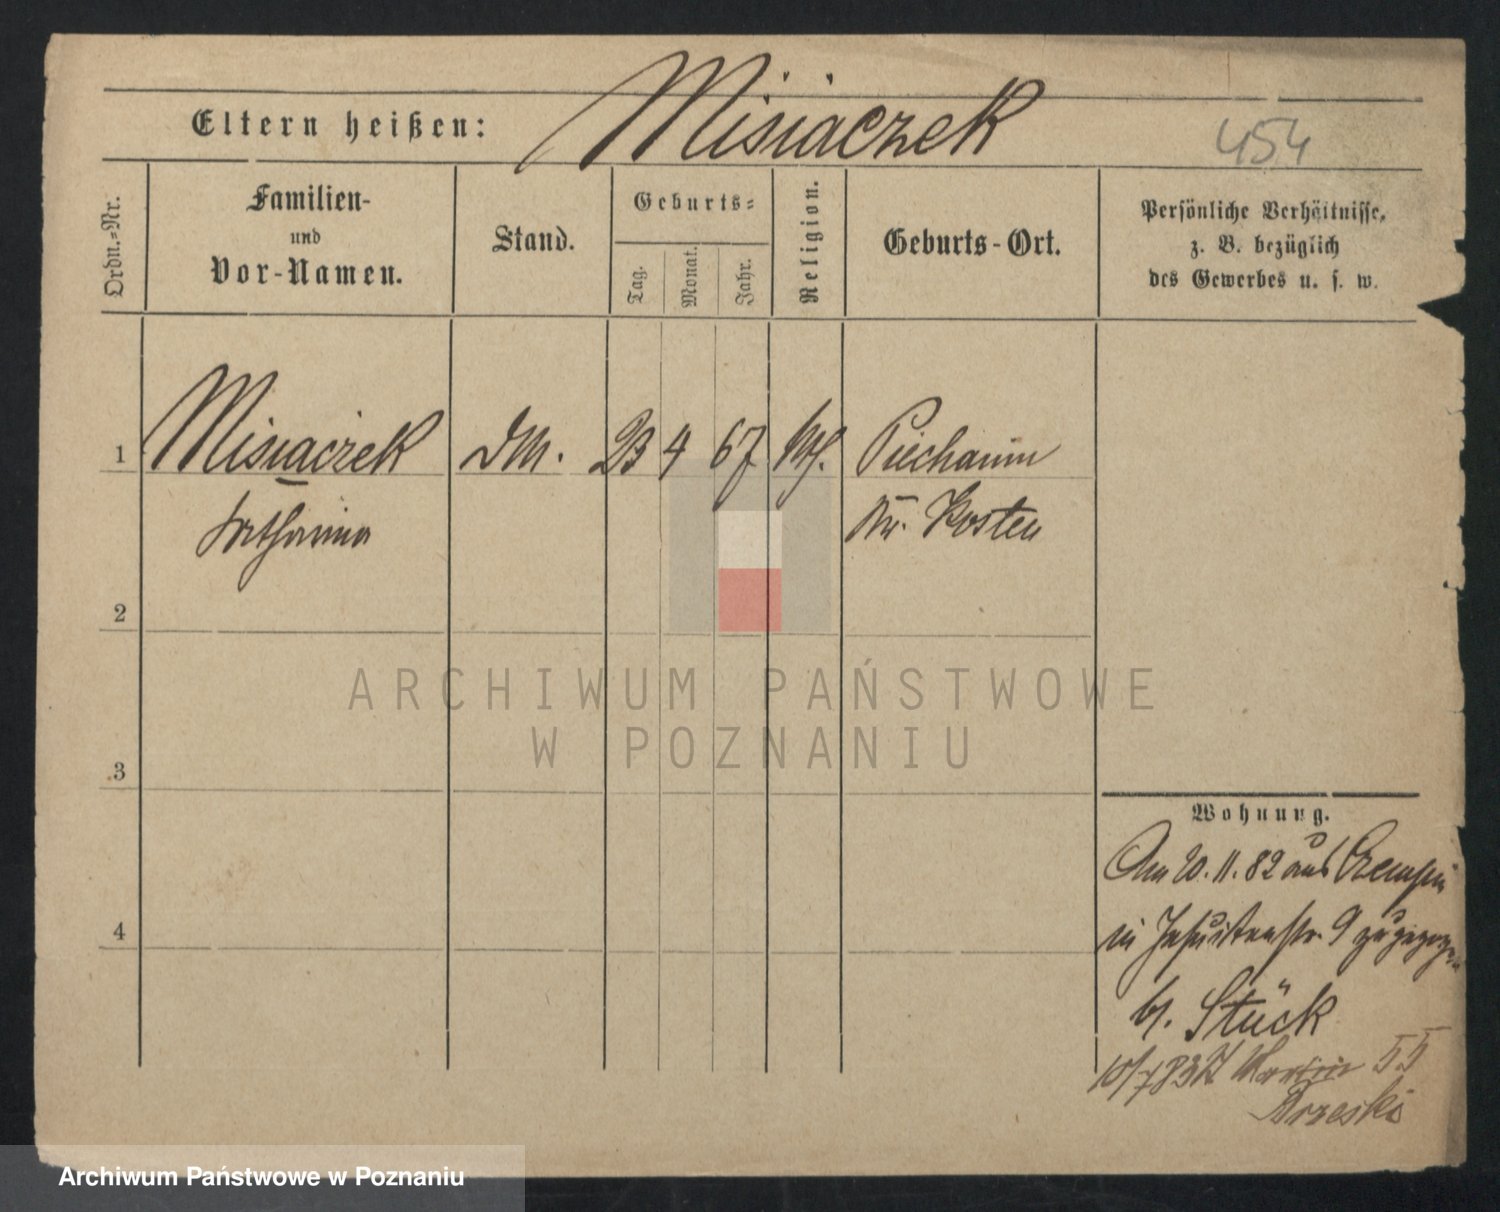 Eltern heißen: Misiaczek
454
Ordn.=Nr.
Familien-
und
Vor-Namen.
Stand.
Geburts=
Tag.
Monat.
Jahr.
Religion.
Geburts-Ort.
Persönliche Verhältnisse,
z. B. bezüglich
des Gewerbes u. s. w.
1 Misiaczek DM. 23 4 67 kth. Piechanin
Kr. Kosten
Katharina
2
3
4
Wohnung.
Am 20. 11. 82 aus Czempin
in Jesuitenstr. 9 zugezogen
bh. Stück
10/7 83 Martin 55
Brzeski
ARCHIWUM PAŃSTWOWE
W POZNANIU
Archiwum Państwowe w Poznaniu